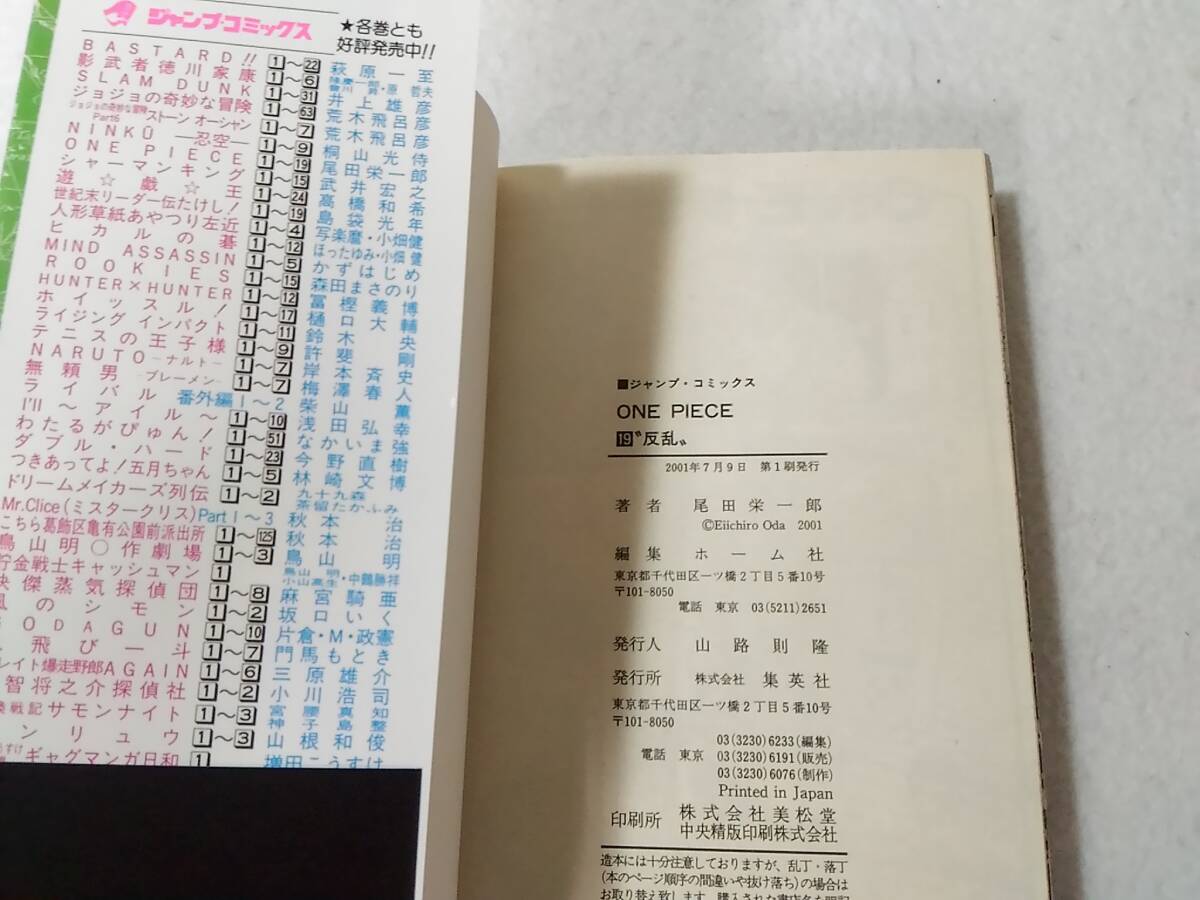 ジャンプ・コミックス
★各巻とも
好評発売中!!
BASTARD!! 1〜22 萩原一至
影武者徳川家康 1〜6 隆慶一郎・原哲夫 會川昇
SLAM DUNK 1〜31 井上雄彦
ジョジョの奇妙な冒険 1〜63 荒木飛呂彦
ジョジョの奇妙な冒険 Part6 ストーン オーシャン 1〜7 荒木飛呂彦
NINKŪ —忍空— 1〜9 桐山光侍
ONE PIECE 1〜19 尾田栄一郎
シャーマンキング 1〜15 武井宏之
遊☆戯☆王 1〜24 高橋和希
世紀末リーダー伝たけし! 1〜19 島袋光年
人形草紙あやつり左近 1〜4 写楽麿・小畑健
ヒカルの碁 1〜12 ほったゆみ・小畑健
MIND ASSASSIN 1〜5 かずはじめ
ROOKIES 1〜15 森田まさのり
HUNTER×HUNTER 1〜12 冨樫義博
ホイッスル! 1〜17 樋口大輔
ライジング インパクト 1〜11 鈴木央
テニスの王子様 1〜9 許斐剛
NARUTO—ナルト— 1〜7 岸本斉史
無頼男—ブレーメン— 1〜7 梅澤春人
ライバル 番外編1〜2 柴山薫
I'll〜アイル〜 1〜10 浅田弘幸
わたるがぴゅん! 1〜51 なかいま強
ダブル・ハード 1〜23 今野直樹
つきあってよ!五月ちゃん 1〜5 林崎文博
ドリームメイカーズ列伝 1〜2 九十九森 茶留たかふみ
Mr.Clice(ミスタークリス) Part1〜3 秋本治
こちら葛飾区亀有公園前派出所 1〜125 秋本治
鳥山明○作劇場 1〜3 鳥山明
貯金戦士キャッシュマン 1 鳥山明 小山高生・中鶴勝祥
快傑蒸気探偵団 1〜8 麻宮騎亜
風のシモン 1〜2 坂口いく
ODAGUN 1〜10 片倉・M・政憲
飛び一斗 1〜7 門馬もとき
レイト爆走野郎AGAIN 1〜6 三原雄介
智将之介探偵社 1〜2 小川浩司
喚戦記サモンナイト 1〜3 宮腰真知 神子島整
ンリュウ 1〜3 山根和俊
うすけ ギャグマンガ日和 1 増田こうすけ
■ジャンプ・コミックス
ONE PIECE
19〝反乱〟
2001年7月9日 第1刷発行
著者 尾田栄一郎
©Eiichiro Oda 2001
編集 ホーム社
東京都千代田区一ツ橋2丁目5番10号
〒101-8050
電話 東京 03(5211)2651
発行人 山路則隆
発行所 株式会社 集英社
東京都千代田区一ツ橋2丁目5番10号
〒101-8050
03(3230)6233(編集)
電話 東京 03(3230)6191(販売)
03(3230)6076(制作)
Printed in Japan
印刷所 株式会社美松堂
中央精版印刷株式会社
造本には十分注意しておりますが、乱丁・落丁
(本のページ順序の間違いや抜け落ち)の場合は
お取り替え致します。購入された書店名を明記